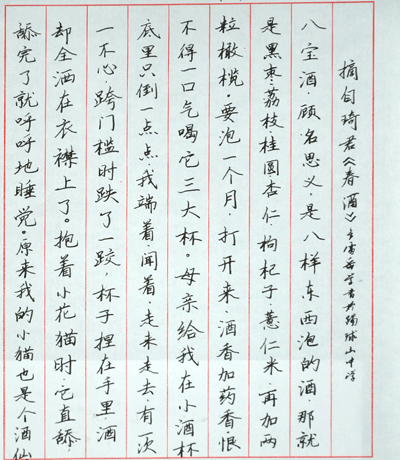 摘自琦君《春酒》
八宝酒，顾名思义，是八样东西泡的酒，那就
是黑枣，荔枝，桂圆，杏仁，枸杞子，薏仁米，再加两
粒橄榄，要泡一个月，打开来，酒香加药香，恨
不得一口气喝它三大杯。母亲给我在小酒杯
底里只倒一点点，我端着，闻着，走来走去，有一次
一不心，跨门槛时跌了一跤，杯子捏在手里，酒
却全洒在衣襟上了。抱着小花猫时，它直舔，
舔完了就呼呼地睡觉。原来我的小猫也是个酒仙